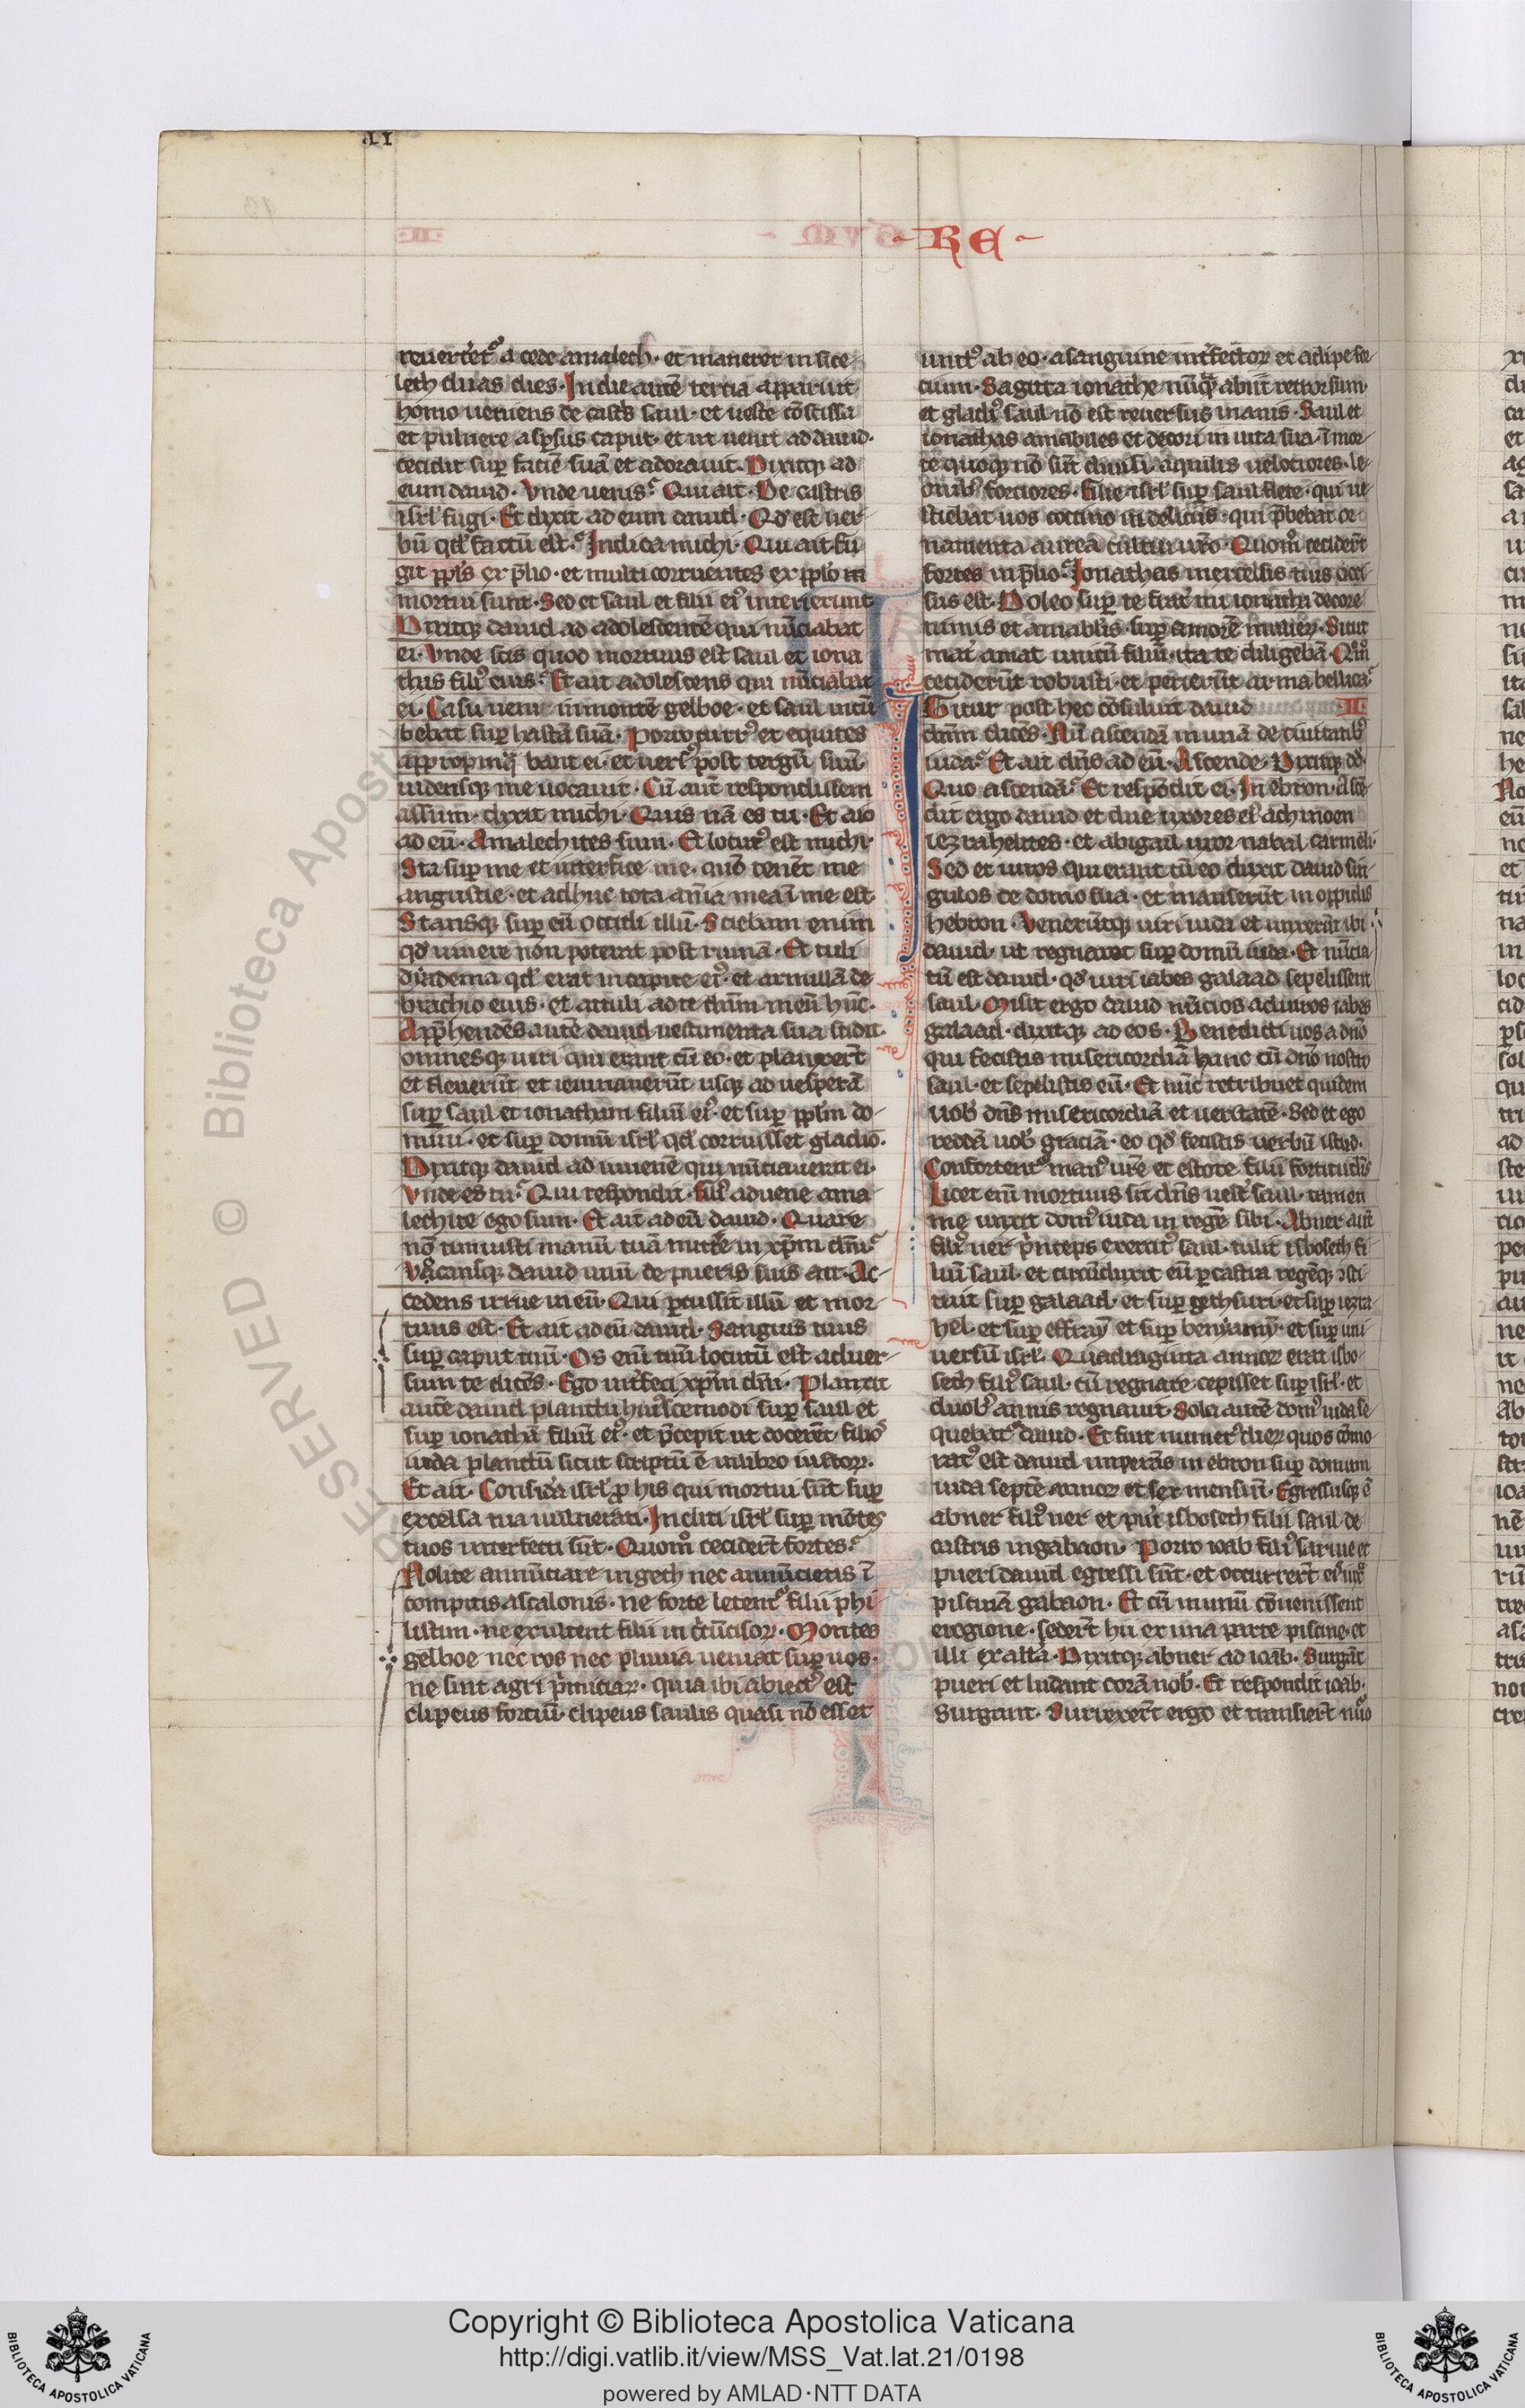 · RE ·
reuert̾et᷒ a cede amalech · et maneret in sice-
lech duas dies · In die autē tertia apparuit
homo ueniens de castͥs saul · et ueste cōscissa
et puluere aspͥsus caput · et ut uenit ad dauid ·
cecidit sup̲ faciē suā et adorauit · Dixitqꝫ ad
eum dauid · Vnde uenis? Qui ait · De castris
isrl̕ fugi · Et dixit ad eum dauid · Qd̕ est uer-
bū qd̕ factū est? Indica michi · Qui ait · Fu-
git ppl̕s ex p̄lio · et multi corruentes ex pplo̕ m
mortui sunt · Sed et saul et filii ei᷒ interierunt
Dixitqꝫ dauid ad adolescentē qui nūciabat
ei · Vnde scis quod mortuus est saul et iona
thas fili᷒ eius? Et ait adolescens qui nūciabat
ei · Casu ueni in montē gelboe · et saul incū-
bebat sup̲ hastā suā · Porro curr᷒ et equites
appropinqͣbant ei · et uers᷒ post tergū suū ·
uidensqꝫ me uocauit · Cū aut̄ respondissem
assum · dixit michi · Quis nā es tu · Et aio
ad eū · Amalechites sum · Et locut᷒ est michi ·
Sta sup̲ me et interfice me · qm̄ tenēt me
angustie · et adhuc tota aīa mea ī me est
Stansqꝫ sup̲ eū occidi illū · Sciebam enim
qd̕ uiuere non poterat post ruinā · Et tuli
dyadema qd̕ erat in capite ei᷒ · et armillā de
brachio eius · et attuli ad te dnm̄ meū huc ·
App̄hendēs autē dauid uestimenta sua scidit ·
omnesqꝫ uiri qui erant cū eo · et planxer̄t
et fleuerūt et ieiunauerūt usqꝫ ad uesperā
sup̲ saul et ionathan filiū ei᷒ · et sup̲ ppl̕m do-
mini · et sup̲ domū isrl̕ qd̕ corruisset gladio ·
Dixitqꝫ dauid ad iuuenē qui nūciauerat ei ·
Vnde es tu? Qui respondit · Fili᷒ aduene ama-
lechite ego sum · Et ait ad eū dauid · Quare
nō timuisti manū tuā mitte̕ in xp̄m dn̄i?
Vocansqꝫ dauid unū de pueris suis ait · Ac-
cedens irrue in eū · Qui p̲cussit illū et mor-
tuus est · Et ait ad eū dauid · Sanguis tuus
sup̲ caput tuū · Os enī tuū locutū est aduer-
sum te dicēs · Ego int̾feci xp̄m dn̄i · Planxit
autē dauid planctū huiuscemodi sup̲ saul et
sup̲ ionathā filiū ei᷒ · et p̄cepit ut docerēt filios
iuda planctū sicut scriptū ē in libro iustoꝝ ·
Et ait · Considera isrl̕ ꝓ his qui mortui sūt sup̲
excelsa tua uulnerati · Incliti isrl̕ sup̲ mōtes
tuos interfecti sūt · Quomͦ cecider̄t fortes?
Nolite annūciare in geth nec annūcietis ī
compitis ascalonis · ne forte letent᷒ filii phi-
listim · ne exultent filii in cͥcūcisoꝝ · Montes
gelboe nec ros nec pluuia ueniat sup̲ uos ·
ne sint agri pͥmiciaꝝ · quia ibi abiect᷒ est
clipeus fortiū · clipeus saulis quasi nō esset
unct᷒ ab eo · a sanguine int̾fectoꝝ et adipe for-
cium · Sagitta ionathe nūqͣ abiit retrorsum ·
et gladi᷒ saul nō est reuersus inanis · Saul et
ionathas amabiles et decori in uita sua · ī mor-
te quoqꝫ nō sūt diuisi · aquilis uelociores · le-
onib᷒ forciores · Filie isrl̕ sup̲ saul flete · qui ue-
stiebat uos coccino in deliciis · qui p̄bebat or-
namenta aurea cultui ur̄o · Quomͦ cecider̄t
fortes in p̄lio? Ionathas in excelsis tuis occi-
sus est · Doleo sup̲ te frat̾ mi ionatha decore
nimis et amabilis sup̲ amorē mulieꝝ · Sicut
mat̾ amat unicū filiū · ita te diligebā · Qm̄
ceciderūt robusti · et perierūt arma bellica?
Igitur post hec cōsuluit dauid II
dnm̄ dicēs · Nū ascendā in unā de ciuitatib᷒
iuda? Et ait dn̄s ad eū · Ascende · Dixitqꝫ dd̕ ·
Quo ascendā? Et respōdit ei · In ebron · Ascē-
dit ergo dauid et due uxores ei᷒ · achinoen
iezrahelites · et abigail uxor nabal carmeli ·
Sed et uiros qui erant cū eo duxit dauid sin-
gulos de domo sua · et manserūt in oppidis
hebron · Venerūtqꝫ uiri iuda et unxerūt ibi
dauid · ut regnaret sup̲ domū iuda · Et nūcia-
tū est dauid · qd̕ uiri iabes galaad sepelissent
saul · Misit ergo dauid nūcios ad uiros iabes
galaad · dixitqꝫ ad eos · Benedicti uos a dn̄o
qui fecistis misericordiā hanc cū dn̄o nostro
saul · et sepelistis eū · Et nūc retribuet quidem
uob᷒ dn̄s misericordiā et ueritatē · Sed et ego
reddā uob᷒ graciā · eo qd̕ fecistis uerbū istud ·
Confortent᷒ man᷒ ur̄e et estote filii fortitudīs
Licet enī mortuus sit dn̄s uest̾ saul · tamen
me unxit dom᷒ iuda in regē sibi · Abner aut̄
fili᷒ ner pͥnceps exercit᷒ saul · tulit isboseth fi-
liū saul · et circūduxit eū p̲ castra · regēqꝫ ꝯsti-
tuit sup̲ galaad · et sup̲ gethsuri · et sup̲ iezra-
hel · et sup̲ effraȳ et sup̲ benyamȳ · et sup̲ uni-
uersū isrl̕ · Quadraginta annoꝝ erat isbo-
seth fili᷒ saul · cū regnare cepisset sup̲ isrl̕ · et
duob᷒ annis regnauit · Sola autē dom᷒ iuda se-
quebat᷒ dauid · Et fuit numer᷒ dieꝝ quos cōmo-
rat᷒ est dauid imperās in ebron sup̲ domum
iuda septē annoꝝ et sex mensiū · Egressusqꝫ ē
abner fili᷒ ner et puͥi isboseth filii saul de
castris in gabaon · Porro ioab fili᷒ saruie et
pueri dauid egressi sūt · et occurrer̄t eis iuxͣ
piscinā gabaon · Et cū in unū cōuenissent
e regione · seder̄t hii ex una parte piscine · et
illi ex alt̾a · Dixitqꝫ abner ad ioab · Surgāt
pueri et ludant corā nob᷒ · Et respondit ioab ·
Surgant · Surrexer̄t ergo et transier̄t nūo
Copyright © Biblioteca Apostolica Vaticana
http://digi.vatlib.it/view/MSS_Vat.lat.21/0198
powered by AMLAD·NTT DATA
BIBLIOTECA APOSTOLICA VATICANA
BIBLIOTECA APOSTOLICA VATICANA